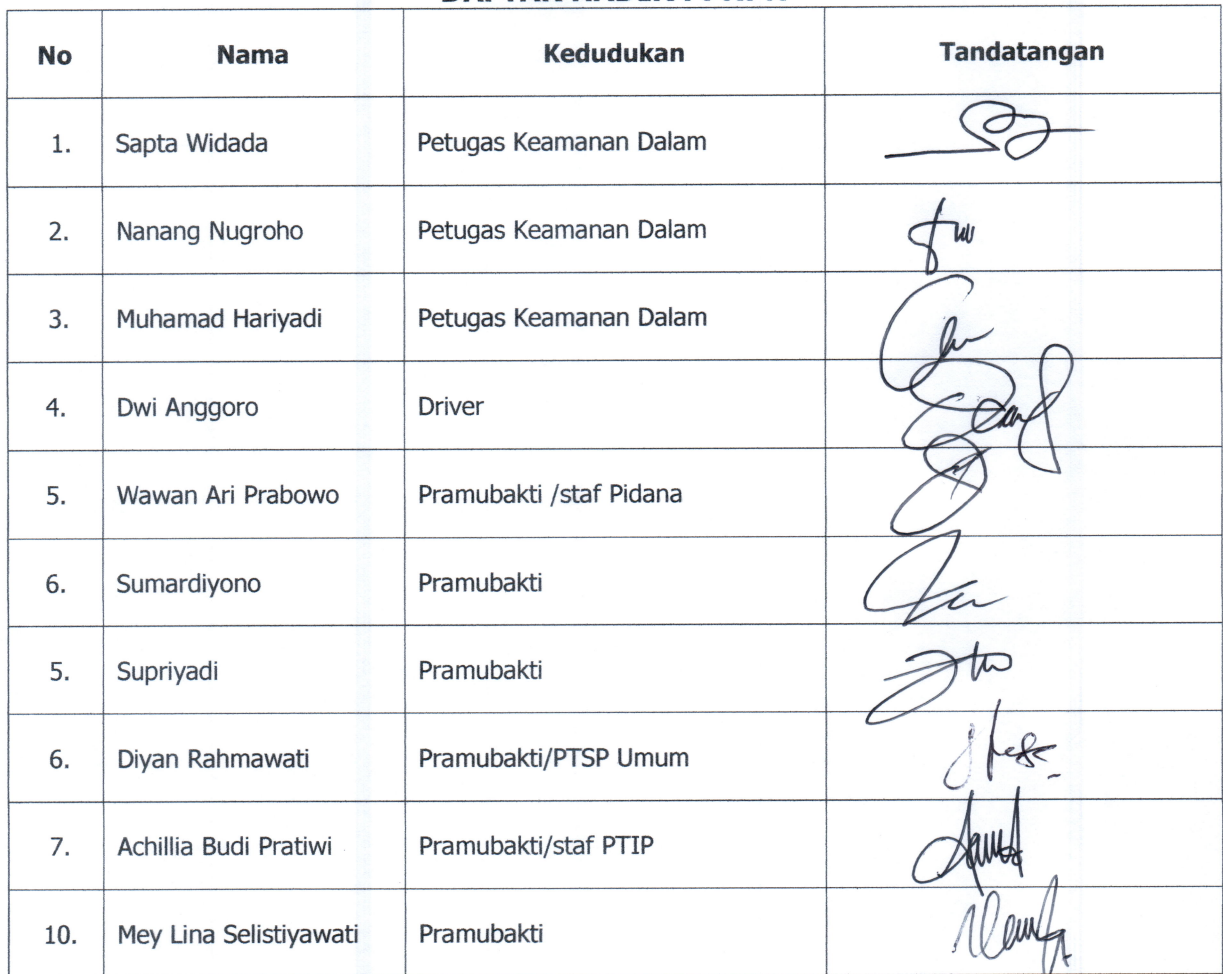 No Nama Kedudukan Tandatangan
1. Sapta Widada Petugas Keamanan Dalam
2. Nanang Nugroho Petugas Keamanan Dalam
3. Muhamad Hariyadi Petugas Keamanan Dalam
4. Dwi Anggoro Driver
5. Wawan Ari Prabowo Pramubakti /staf Pidana
6. Sumardiyono Pramubakti
5. Supriyadi Pramubakti
6. Diyan Rahmawati Pramubakti/PTSP Umum
7. Achillia Budi Pratiwi Pramubakti/staf PTIP
10. Mey Lina Selistiyawati Pramubakti